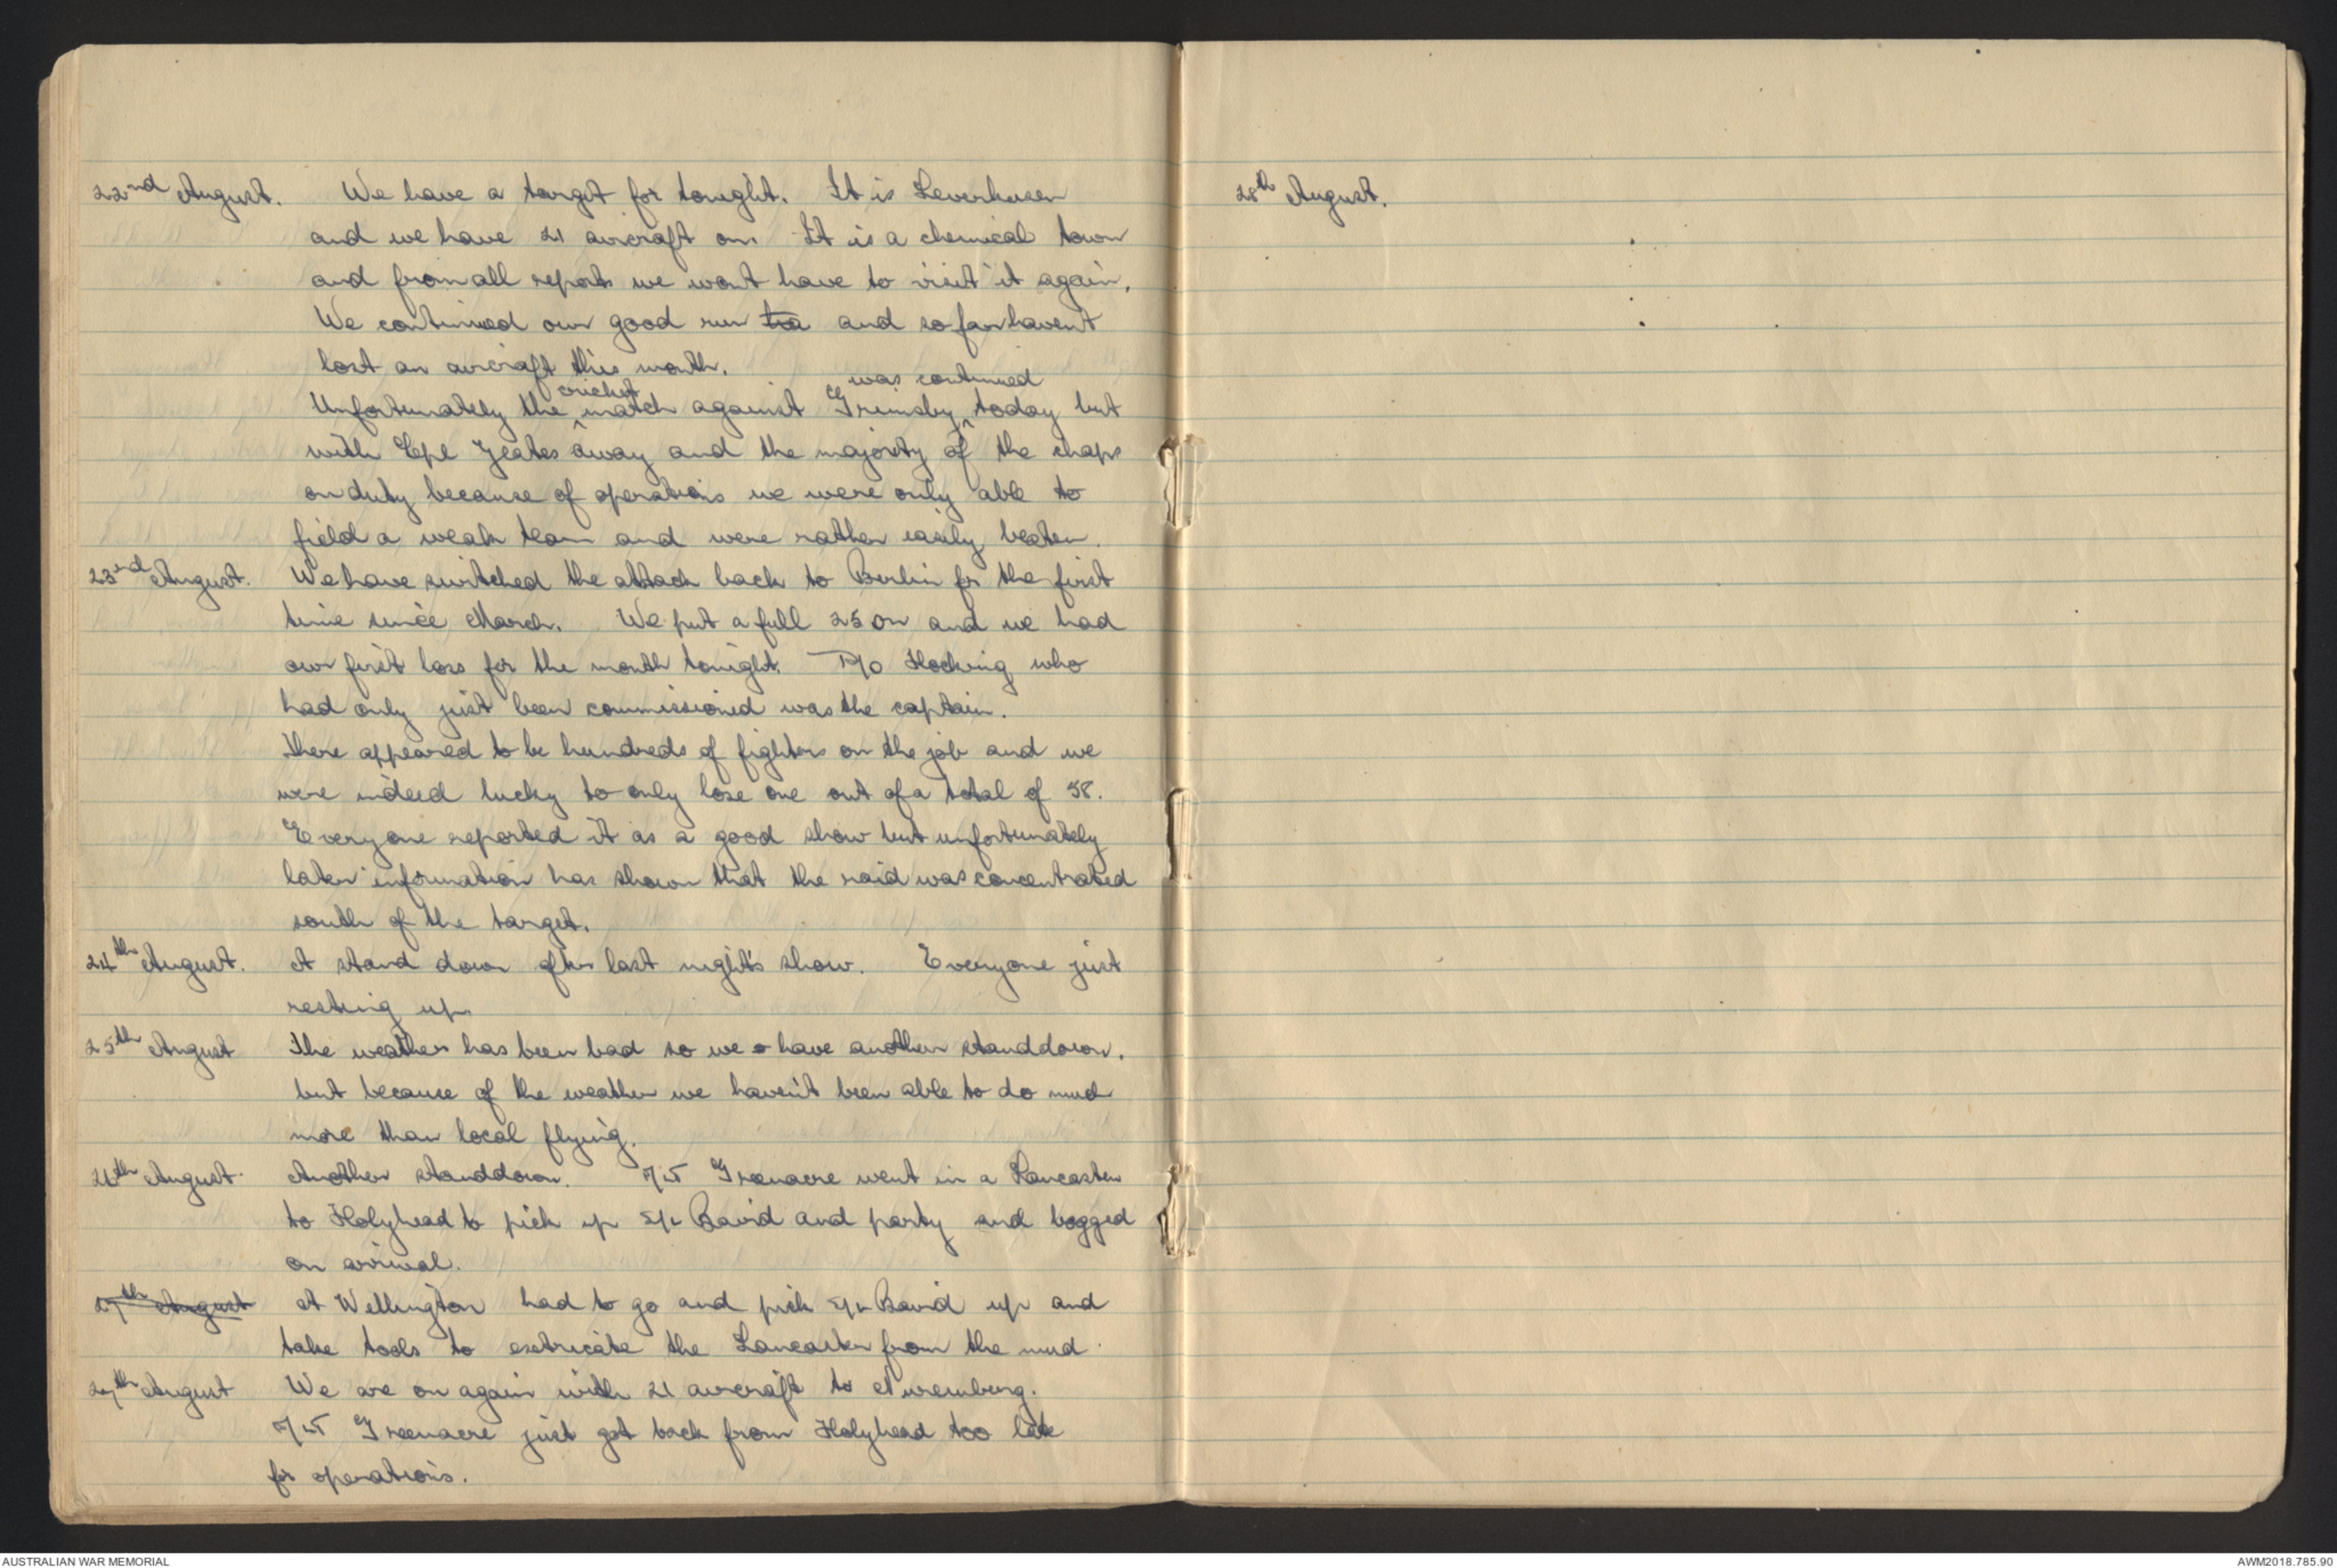 22nd August. We have a target for tonight. It is Leverkusen
and we have 21 aircraft on. It is a chemical town
and from all reports we wont have to visit it again.
We continued our good run too and so far havent
lost an aircraft this month.
cricket was continued
Unfortunately the match against Grimsby today but
with Cpl Yeates away and the majority of the chaps
on duty because of operations we were only able to
field a weak team and were rather easily beaten.
23rd August. We have switched the attack back to Berlin for the first
time since March. We put a full 25 on and we had
our first loss for the month tonight. P/O Hocking who
had only just been commissioned was the captain.
There appeared to be hundreds of fighters on the job and we
were indeed lucky to only lose one out of a total of 58.
Everyone reported it as a good show but unfortunately
later information has shown that the raid was concentrated
south of the target.
24th August. A stand down after last night's show. Everyone just
resting up.
25th August The weather has been bad so we have another standdown.
but because of the weather we haven't been able to do mud
more than local flying.
26th August. Another standdown. F/LT Greenacre went in a Lancaster
to Holyhead to pick up S/L Baird and party and bogged
on arrival.
27th August A Wellington had to go and pick S/L Baird up and
take tools to exetricate the Lancaster from the mud.
27th August We are on again with 21 aircraft to Nuremburg.
F/LT Greenacre just got back from Holyhead too late
for operations.
28th August.
AUSTRALIAN WAR MEMORIAL
AWM2018.785.90